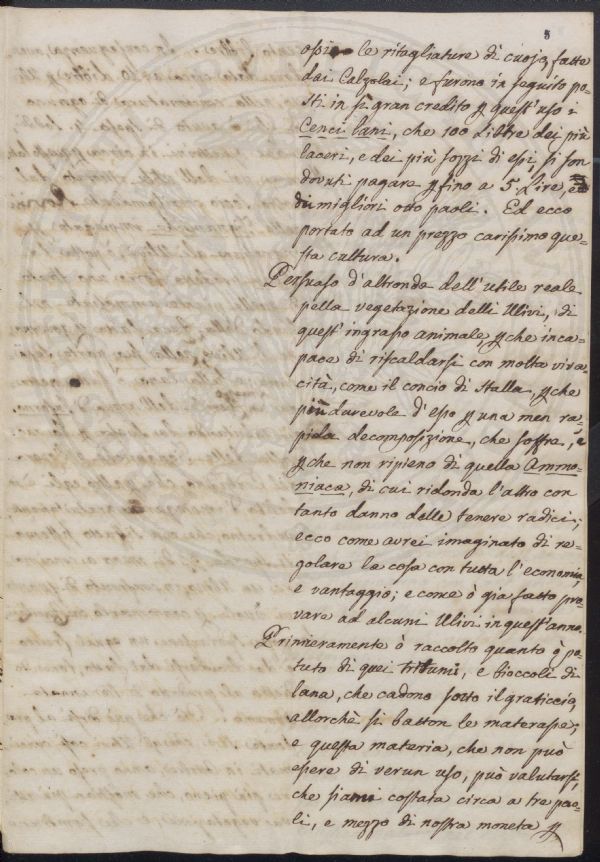 8
ossia le ritagliature di cuojo, fatte
dai Calzolai; e furono in seguito po=
sti in sì gran credito p quest'uso i
Cenci lani, che 100 Libre dei più
laceri, e dei più sozzi di essi, si son
dovuti pagare p fino a 5. Lire, e
du migliori otto paoli. Ed ecco
portato ad un prezzo carissimo que=
sta cultura.
Persuaso d'altronde dell'utile reale
pella vegetazione delli Ulivi, di
quest'ingrasso animale, p che inca=
pace di riscaldarsi con molta viva=
cità, come il concio di Stalla, p che
più durevole d'esso p una men ra=
pida decomposizione, che soffre, e
p che non ripieno di quella Ammo=
niaca, di cui ridonda l'altro con
tanto danno delle tenere radici;
ecco come avrei imaginato di re=
golare la cosa con tutta l'economia,
e vantaggio; e come ò già fatto pro=
vare ad alcuni Ulivi in quest'anno.
Primieramente ò raccolto quanto ò po=
tuto di quei tritumi, e bioccoli di
lana, che cadono sotto il graticcio,
allorchè si batton le materasse;
e questa materia, che non può
essere di verun uso, può valutarsi,
che siami costata circa a tre pao=
li, e mezzo di nostra moneta p